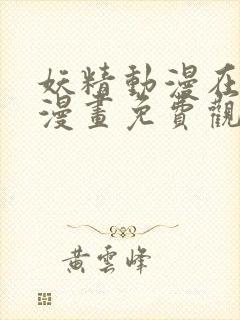 妖精動漫在
漫畫免費觀
黃雲峰